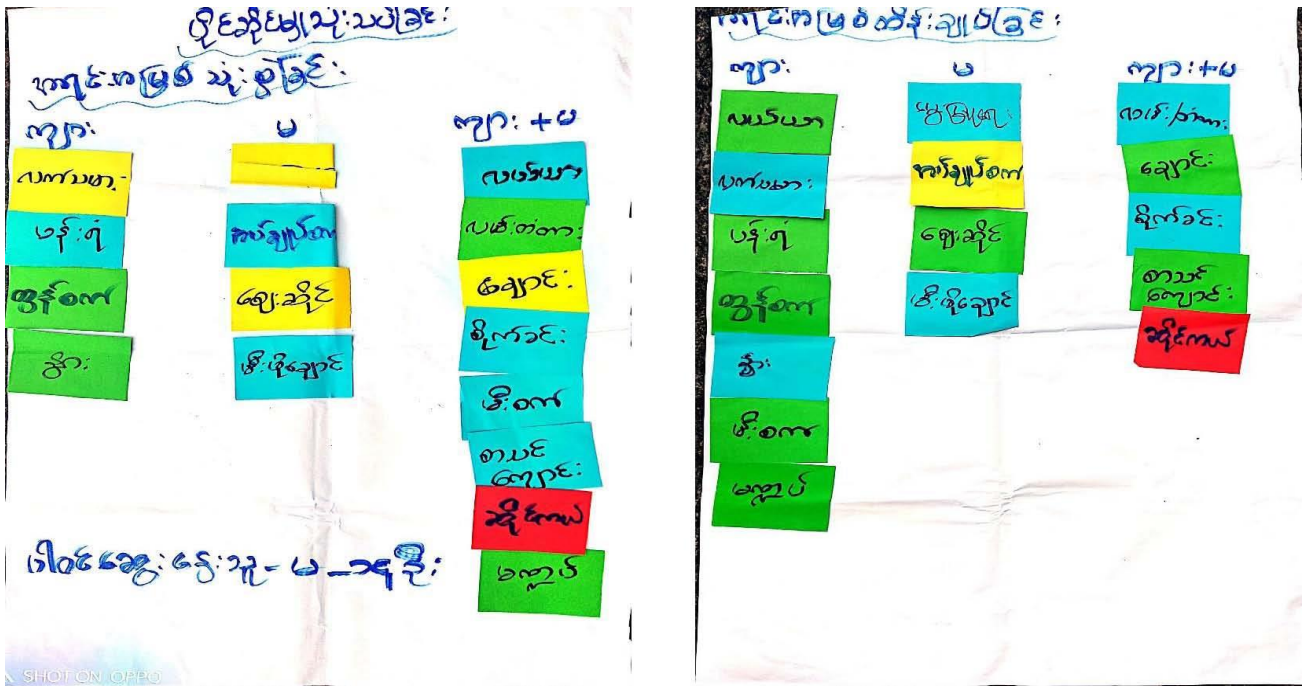 ပိုင်ဆိုင်မှုသုံးသပ်ခြင်း
အရင်းအမြစ် သုံးစွဲခြင်း
ကျား
မ
ကျား + မ
လက်သမား
ပန်းရံ
ထွန်စက်
နွား
အပ်ချုပ်စက်
ဈေးဆိုင်
မီးဖိုချောင်
လယ်ယာ
လမ်း တံတား
ချောင်း
စိုက်ခင်း
မီးစက်
စာသင်
ကျောင်း
ဆိုင်ကယ်
မဏ္ဍပ်
ပါဝင်ဆွေးနွေးသူ - မ
SHOT ON OPPO
အရင်းအမြစ်ထိန်းချုပ်ခြင်း
ကျား
မ
ကျား + မ
လယ်ယာ
လက်သမား
ပန်းရံ
ထွန်စက်
နွား
မီးစက်
မဏ္ဍပ်
အပ်ချုပ်စက်
ဈေးဆိုင်
မီးဖိုချောင်
လမ်း/တံတား
ချောင်း
စိုက်ခင်း
စာသင်
ကျောင်း
ဆိုင်ကယ်